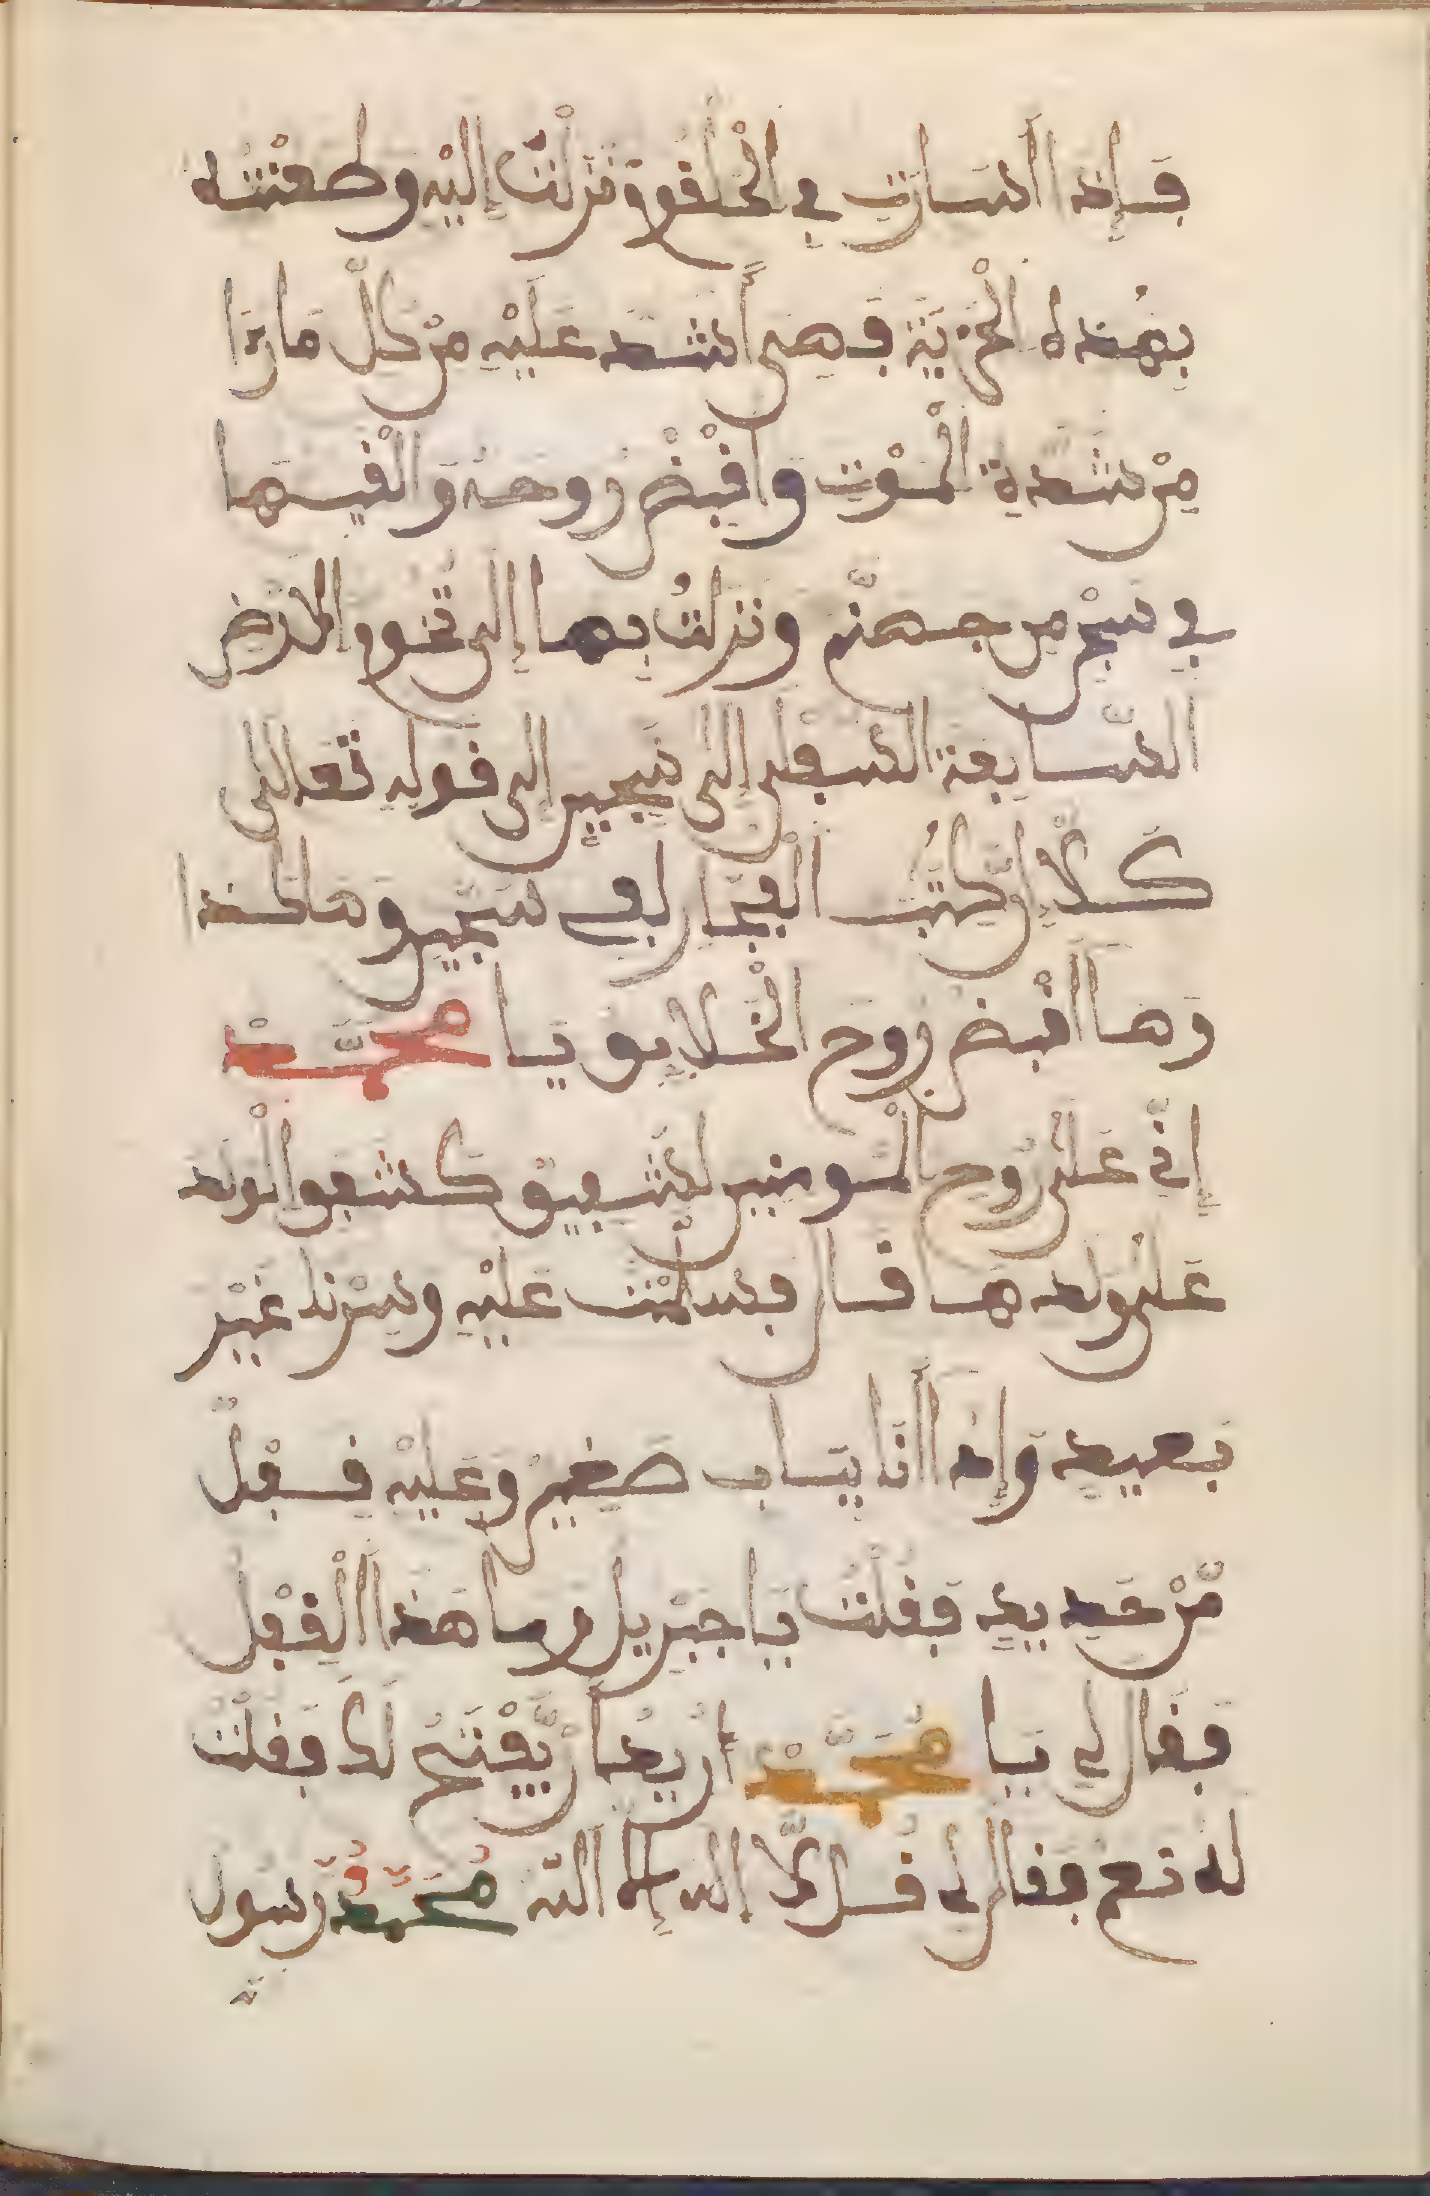 فإذا اسارت في الحلقوم نزلت إليه وطعنته
بهذه الحربة فهي أشد عليه من كل ما رءا
من شدة الموت واقبض روحه والقيها
في سجن من جهنم ونزلت بها إلى تخوم الارض
السابعة السفلى إلى سجين إلى قوله تعالى
كلا إن كتب الفجار لفي سجين وهاكذا
وها أقبض روح الخلايق يا محمد
إني على روح المومنين لشفيق كشفق الولد
على ولدها قال فسلمت عليه وسرنا غير
بعيد وإذا أنا بباب صغير وعليه قفل
من حديد فقلت يا جبريل وما هذا القفل
فقال لي يا محمد اريد ان يفتح لك فقلت
له نعم فقال لي قل لا اله إلا الله محمد رسول